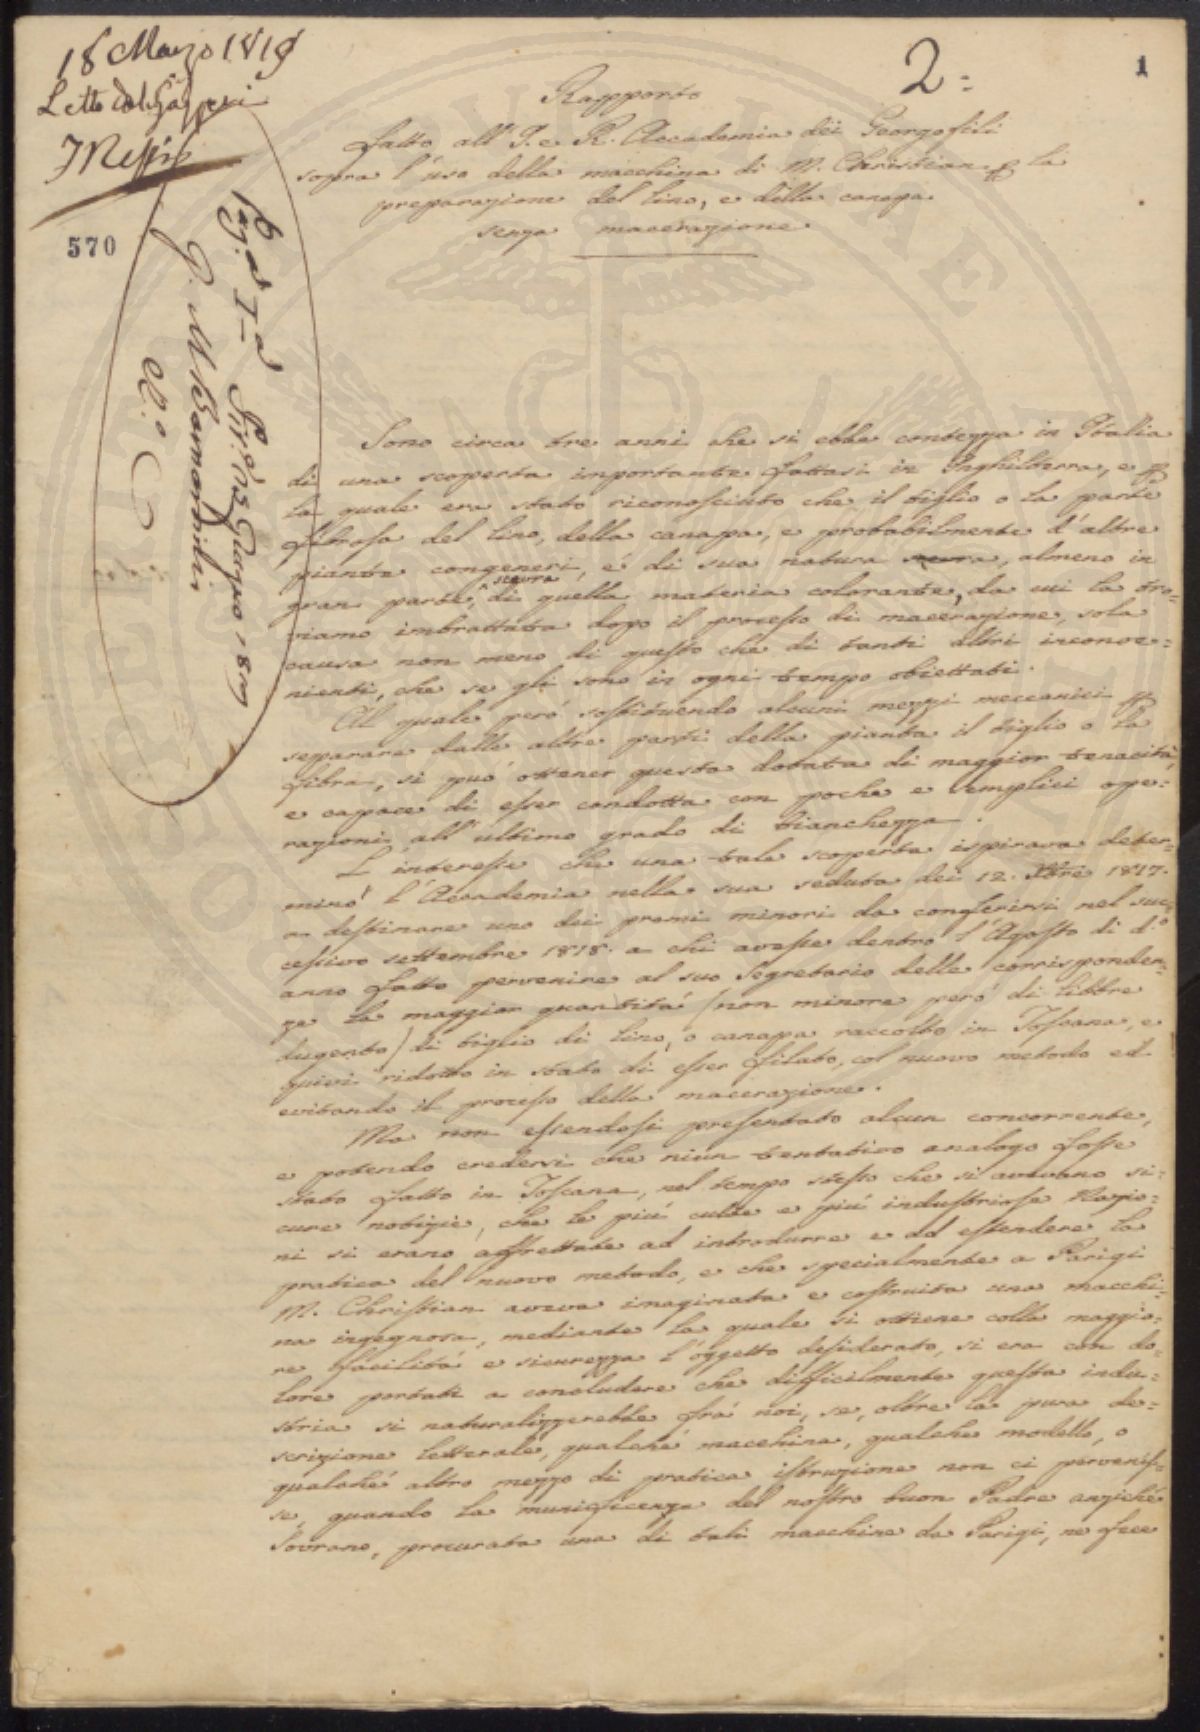 18 Marzo 1819
Letto dal Gazzeri
2.
1
570
Rapporto
fatto all' I. e R. Accademia dei Georgofili
sopra l'uso della macchina di M. Christian p. la
preparazione del lino, e della canapa
senza macerazione
Pag. 
G. 
Sono circa tre anni che si ebbe contezza in Italia
di una scoperta importante fattasi in Inghilterra, e p.
la quale era stato riconosciuto che il tiglio o la parte
fibrosa del lino, della canapa, e probabilmente d'altre
piante congeneri, é di sua natura scevra, almeno in
gran parte, scevra di quella materia colorante, da cui la tro=
viamo imbrattata dopo il processo di macerazione, sola
causa non meno di questo che di tanti altri inconve=
nienti, che se gli sono in ogni tempo obiettati.
Al quale peró sostituendo alcuni mezzi meccanici p.
separare dalle altre parti della pianta il tiglio o la
fibra, si puó ottener questa dotata di maggior tenacitá,
e capace di esser condotta con poche e semplici ope=
razioni all'ultimo grado di bianchezza.
L'interesse che una tale scoperta ispirava deter=
minó l'Accademia nella sua seduta dei 12. Xbre 1817.
a destinare uno dei premi minori da conferirsi nel suc=
cessivo settembre 1818. a chi avesse dentro l'Agosto di d.o
anno fatto pervenire al suo Segretario delle corrisponden=
ze la maggior quantitá (non minore peró di libbre
dugento) di tiglio di lino, o canapa raccolto in Toscana, e
quivi ridotto in stato di esser filato, col nuovo metodo ed
evitando il processo della macerazione.
Ma non essendosi presentato alcun concorrente,
e potendo credersi che niun tentativo analogo fosse
stato fatto in Toscana, nel tempo stesso che si avevano si=
cure notizie, che le piú culte e piú industriose Nazio=
ni si erano affrettate ad introdurre e ad estendere la
pratica del nuovo metodo, e che specialmente a Parigi
M. Christian aveva imaginata e costruita una macchi=
na ingegnosa, mediante la quale si ottiene colla maggio=
re facilitá e sicurezza l'oggetto desiderato, si era con do=
lore portati a concludere che difficilmente questa indu=
stria si naturalizzerebbe frá noi, se, oltre la pura de=
scrizione letterale, qualche macchina, qualche modello, o
qualché altro mezzo di pratica istruzione non ci pervenis=
se, quando la munificenza del nostro buon Padre anziché
Sovrano, procurata una di tali macchine da Parigi, ne fece